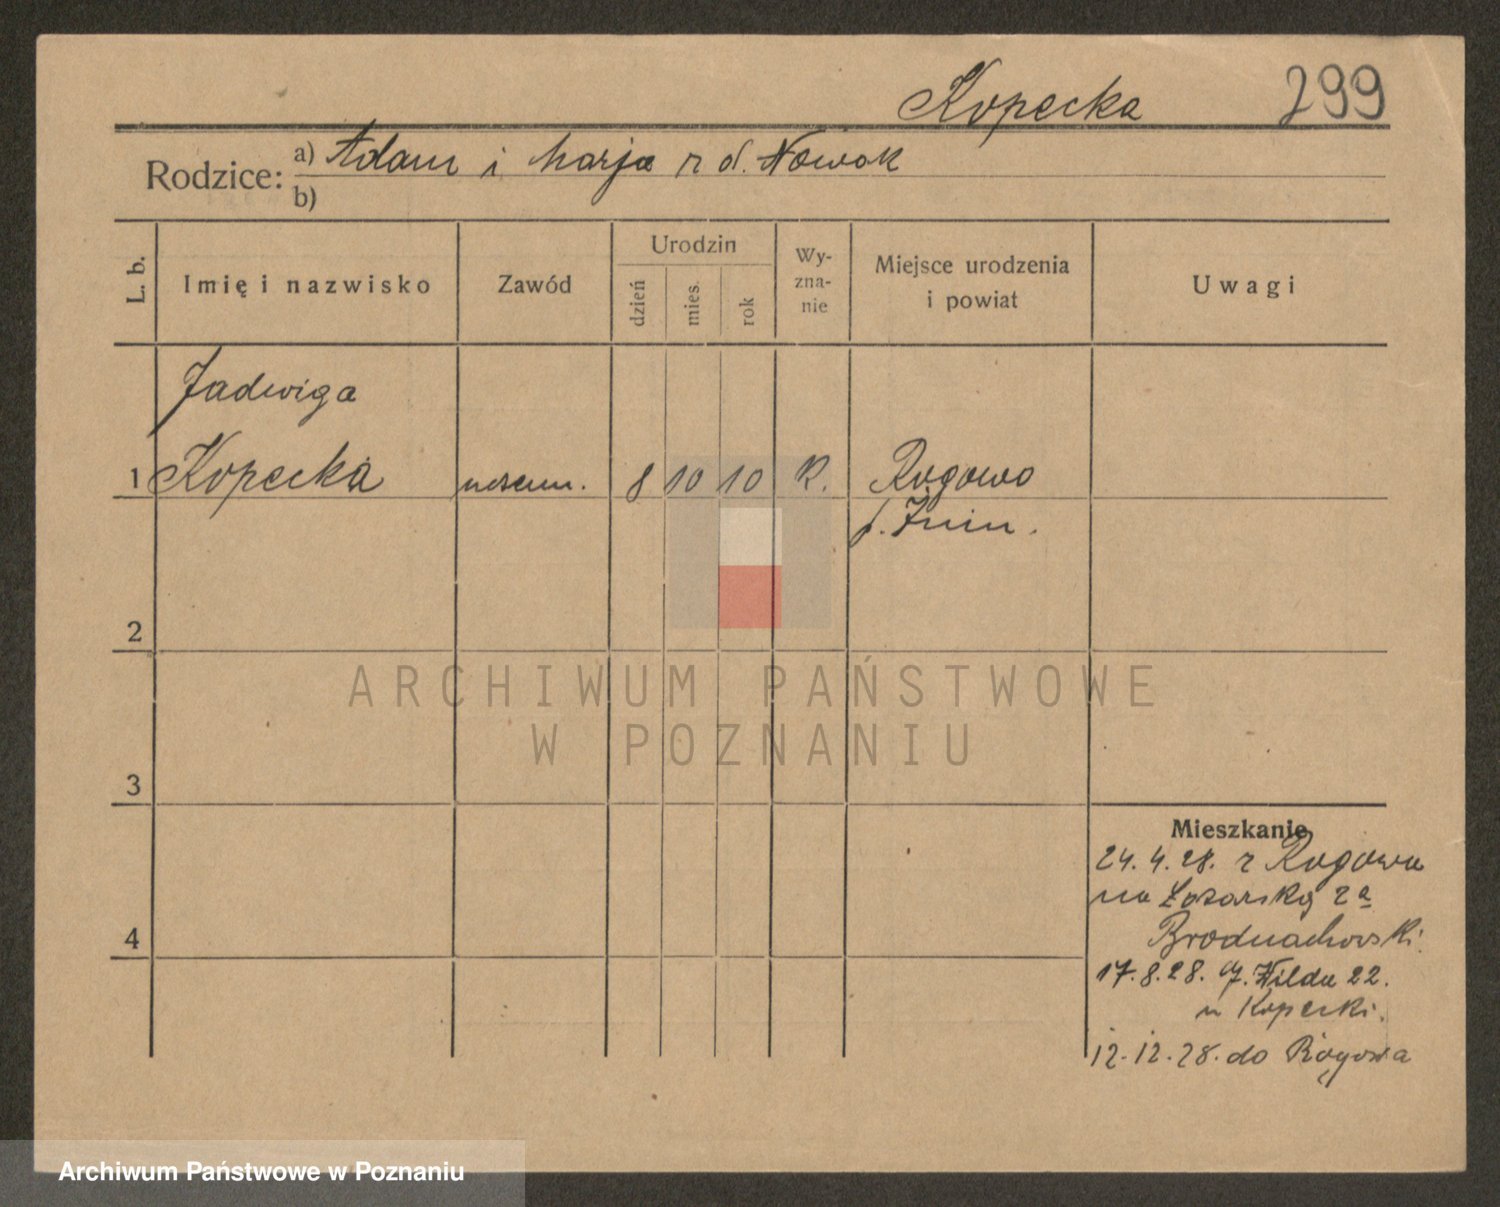 Kopecka 299
Rodzice: a) Adam i Marja z d. Nowak
b)
L. b. Imię i nazwisko Zawód Urodzin dzień mies. rok Wyznanie Miejsce urodzenia i powiat Uwagi
Jadwiga
1 Kopecka uczenn. 8 10 10 R. Rogowo
p. Żnin.
2
ARCHIWUM PAŃSTWOWE
W POZNANIU
3
Mieszkanie
24. 4. 28. z Rogowa
na Łazarską 2a
17. 8. 28. Wilda 22.
u Kopecki.
4
12. 12. 28. do Rogowa
Archiwum Państwowe w Poznaniu